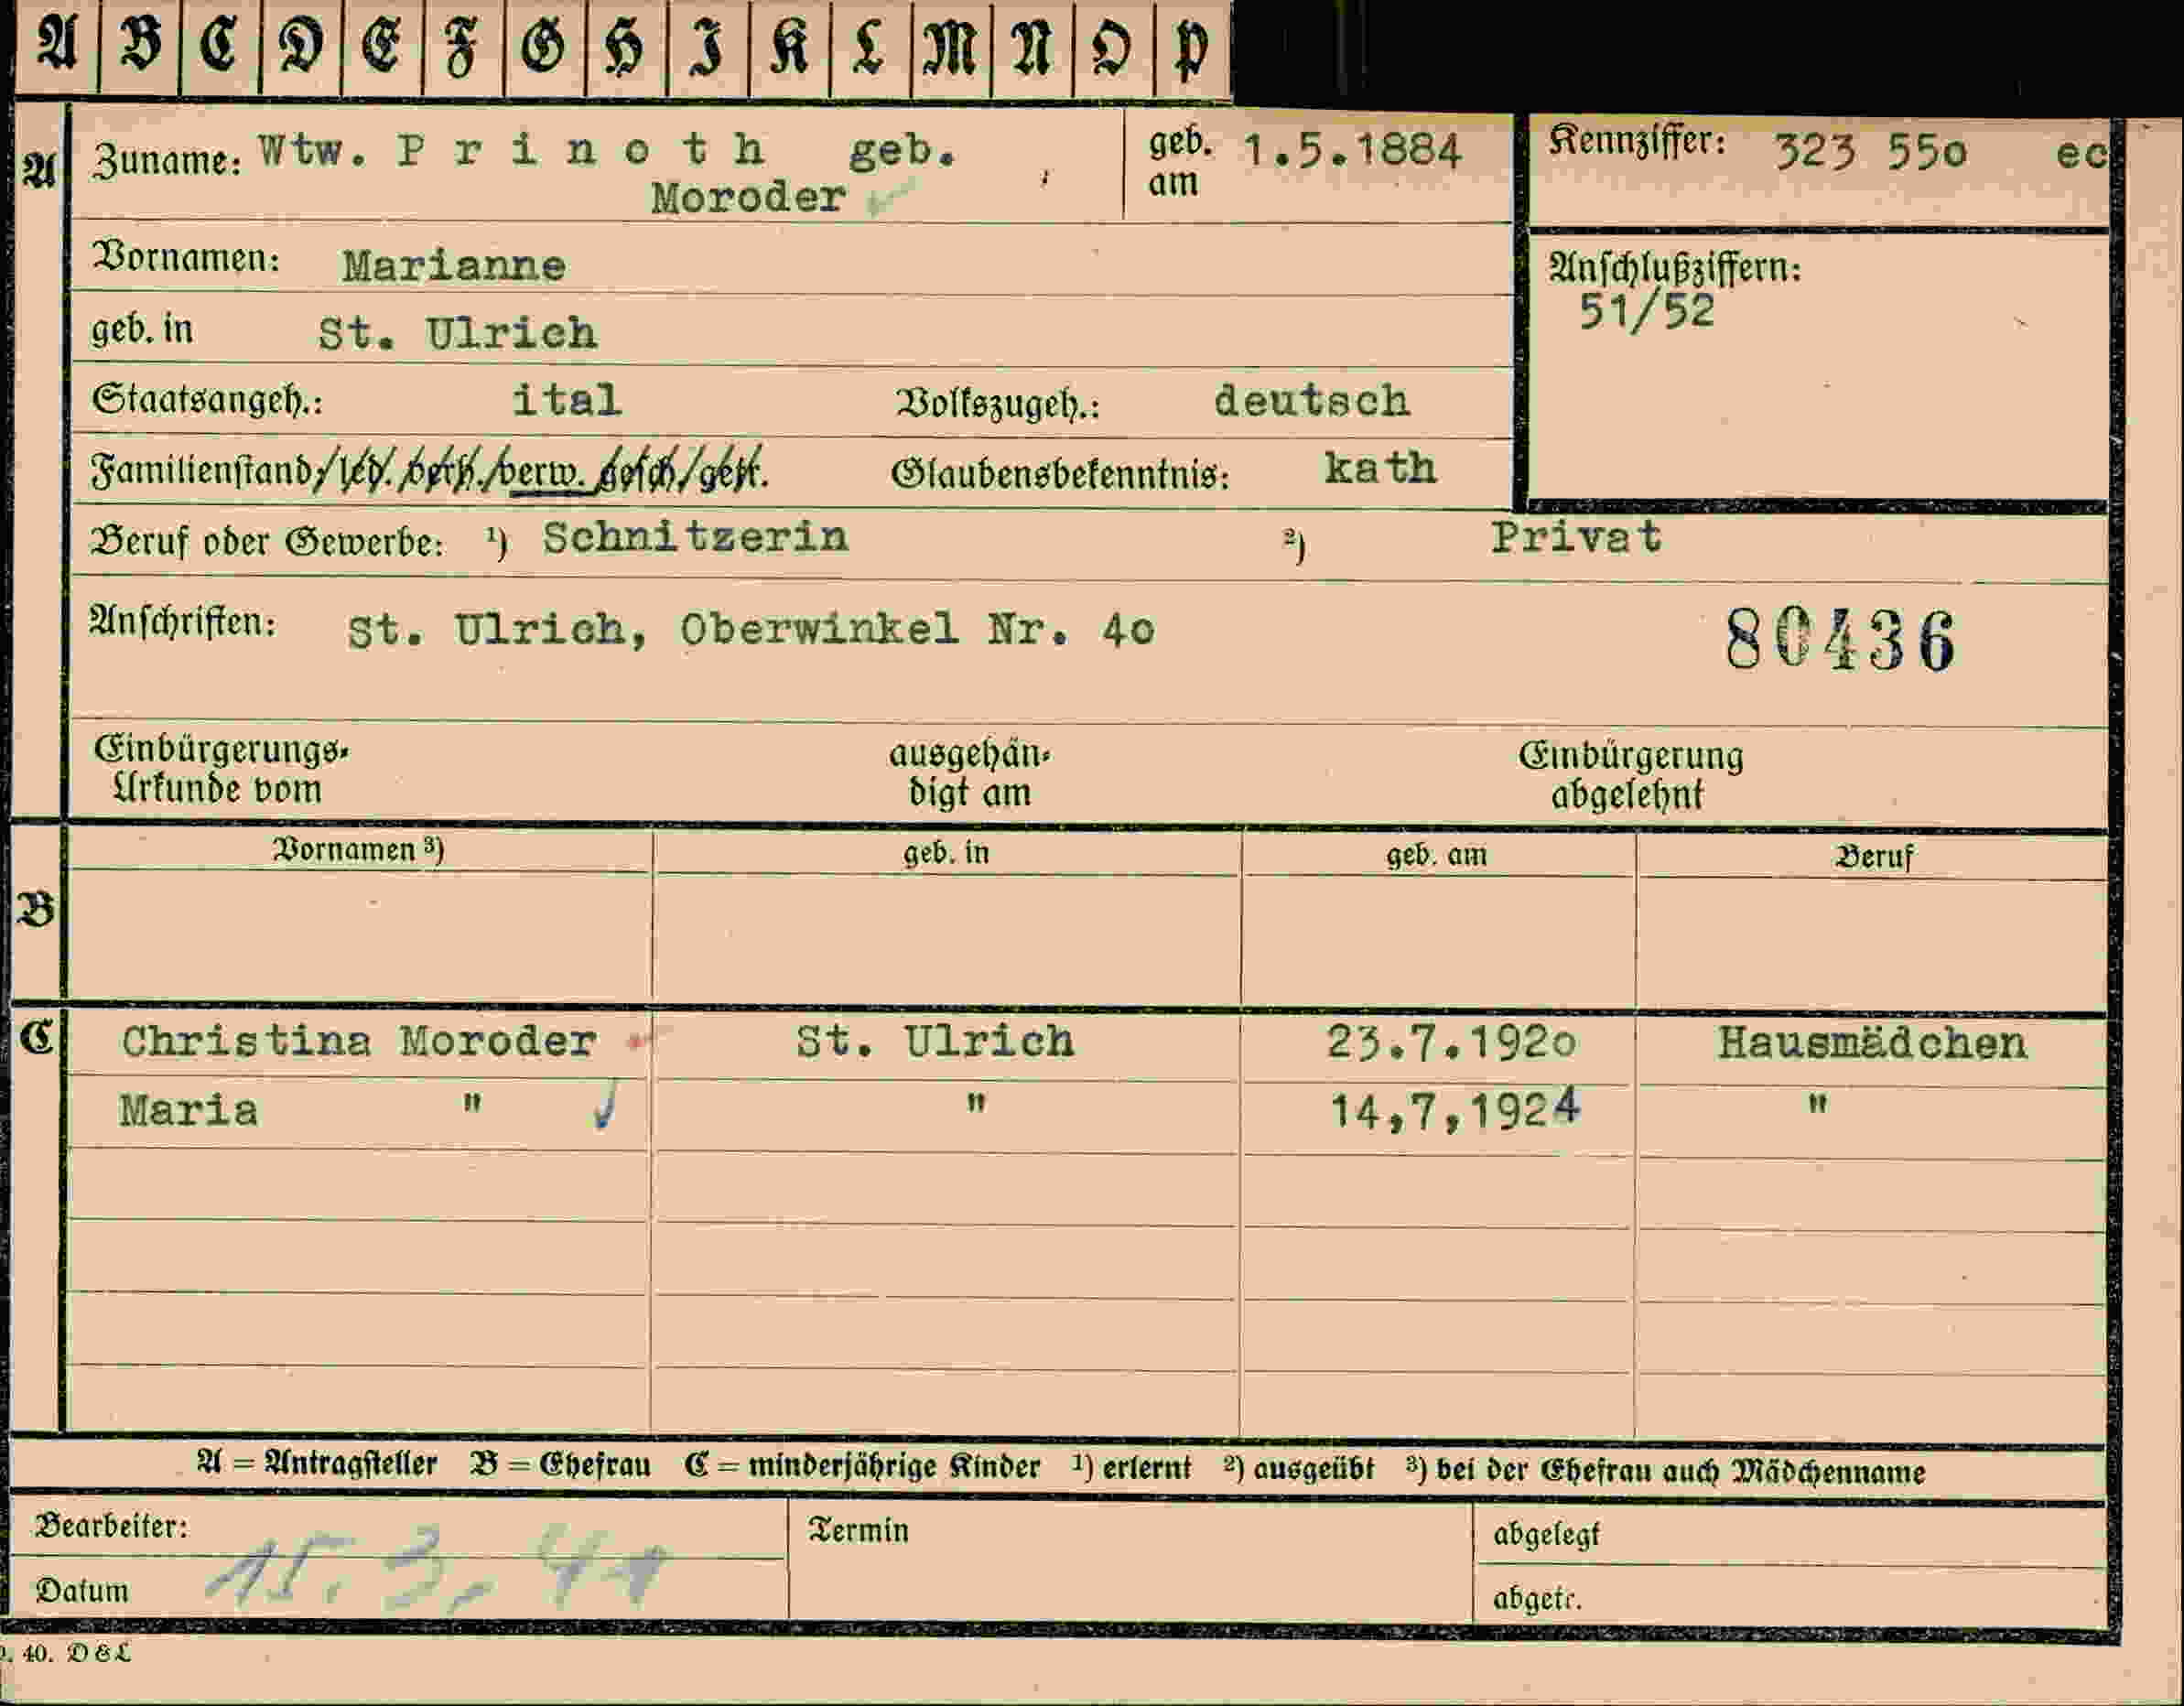 A B C D E F G H I K L M N O P
A Zuname: Wtw. P r i n o t h geb. geb. am 1.5.1884 Kennziffer: 323 55o ec
Moroder
Vornamen: Marianne Anschlußziffern:
51/52
geb. in St. Ulrich
Staatsangeh.: ital Volkszugeh.: deutsch
Familienstand: led. verh. verw. gesch. getr. Glaubensbekenntnis: kath
Beruf oder Gewerbe: ¹) Schnitzerin ²) Privat
Anschriften: St. Ulrich, Oberwinkel Nr. 4o 80436
Einbürgerungs- ausgehän- Einbürgerung
Urkunde vom digt am abgelehnt
Vornamen ³) geb. in geb. am Beruf
B
C Christina Moroder St. Ulrich 23.7.192o Hausmädchen
Maria " " 14,7,1924 "
A = Antragsteller B = Ehefrau C = minderjährige Kinder ¹) erlernt ²) ausgeübt ³) bei der Ehefrau auch Mädchenname
Bearbeiter: Termin abgelegt
Datum 15. 3. 41 abgetr.
40. D & L